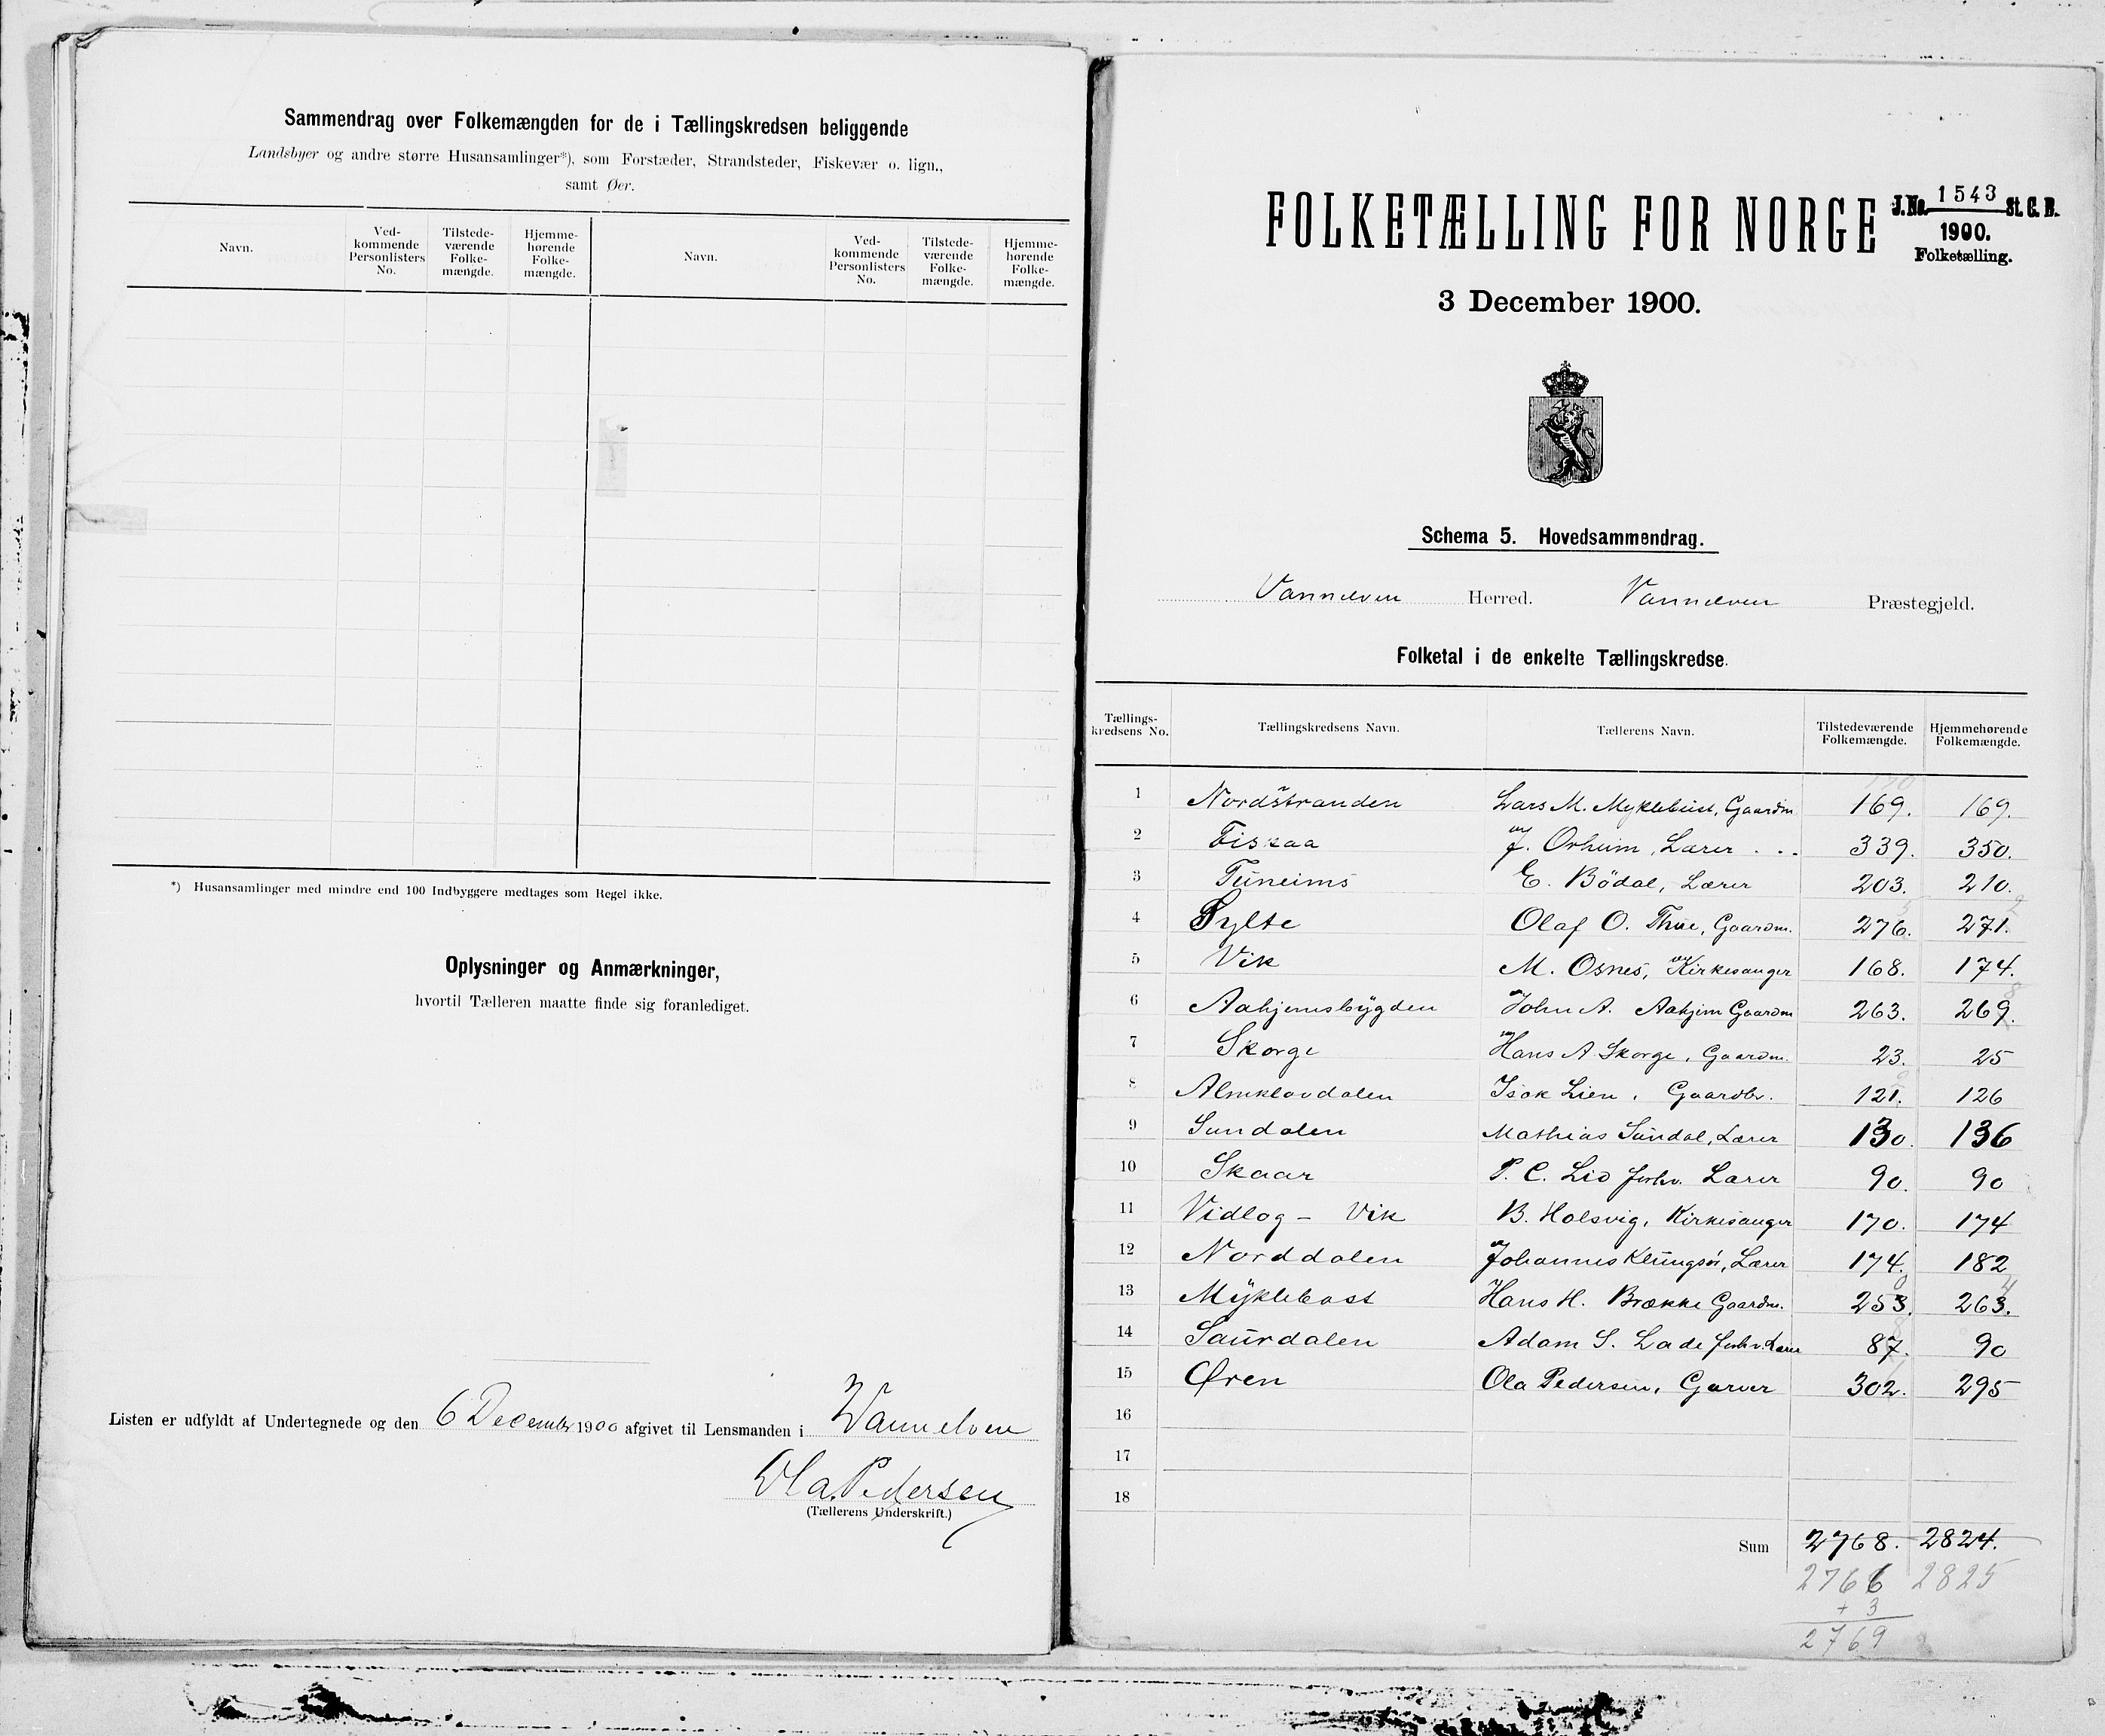 Sammendrag over Folkemængden for de i Tællingskredsen beliggende
Landsbyer og andre større Husansamlinger*), som Forstæder, Strandsteder, Fiskevær o. lign.,
samt Øer.
Navn. Ved-kommende Personlisters No. Tilstede-værende Folke-mængde. Hjemme-hørende Folke-mængde. Navn. Ved-kommende Personlisters No. Tilstede-værende Folke-mængde. Hjemme-hørende Folke-mængde.
*) Husansamlinger med mindre end 100 Indbyggere medtages som Regel ikke.
Oplysninger og Anmærkninger,
hvortil Tælleren maatte finde sig foranlediget.
Listen er udfyldt af Undertegnede og den 6 December 1900 afgivet til Lensmanden i Vannelven
Ola Pedersen
(Tællerens Underskrift.)
FOLKETÆLLING FOR NORGE
J.No. 1543 St. C. B.
1900.
Folketælling.
3 December 1900.
Schema 5. Hovedsammendrag.
Vannelven Herred. Vannelven Præstegjeld.
Folketal i de enkelte Tællingskredse.
Tællings-kredsens No. Tællingskredsens Navn. Tællerens Navn. Tilstedeværende Folkemængde. Hjemmehørende Folkemængde.
1 Nordstranden Lars M. Myklebust, Gaardm. 169. 169.
2 Fiskaa J. Orheim, Lærer 339. 350.
3 Tuneims E. Bödal, Lærer 203. 210.
4 Sylte Olaf O. Thue, Gaardm. 276. 271.
5 Vik M. Osnes, Kirkesanger 168. 174.
6 Aahjemsbygden John A. Aahjem Gaardm 263. 269.
7 Skorge Hans A Skorge, Gaardm. 23. 25
8 Almklovdalen Isak Lien, Gaardbr. 121. 126
9 Sundalen Mathias Sundal, Lærer 130. 136
10 Skaar P. C. Lid forhv. Lærer 90. 90
11 Vidlog - Vik B. Holsvig, Kirkesanger 170. 174
12 Norddalen Johannes Klungsör, Lærer 174. 182
13 Myklebost Hans H. Brække Gaardm. 253. 263.
14 Saurdalen Adam S. Lade forhv. Lærer 87. 90
15 Øren Ola Pedersen, Garver 302. 295
16
17
18
Sum 2768. 2824.
2766 2825
+ 3
2769